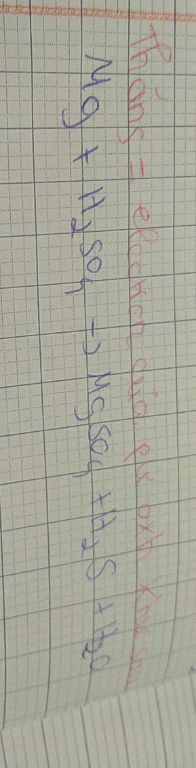 Thăng = electron của pư oxh khử sau
Mg + H₂SO₄ → MgSO₄ + H₂S + H₂O